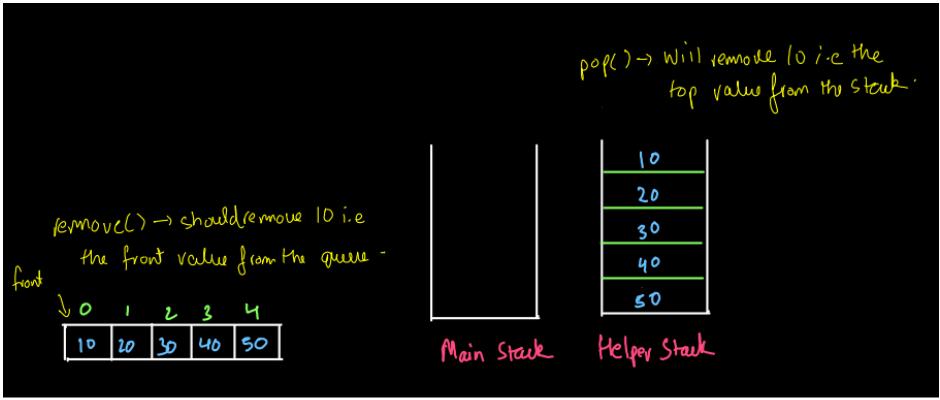 pop() → Will remove 10 i.e the
top value from the stack.
10
20
30
40
50
remove() → should remove 10 i.e
the front value from the queue -
front
0 1 2 3 4
10 20 30 40 50
Main Stack
Helper Stack